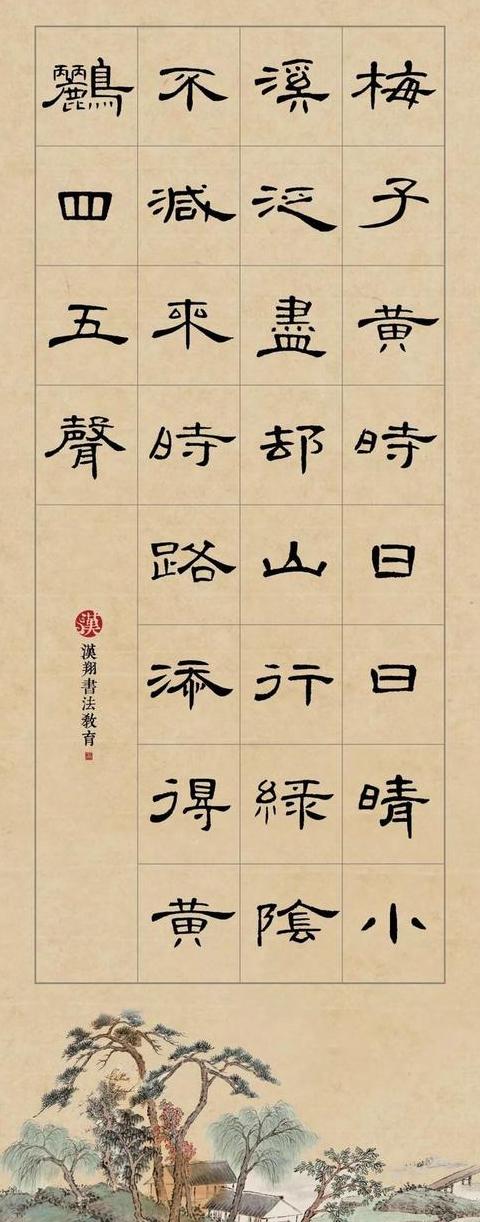 梅子黄時日日晴小
溪泛盡却山行綠陰
不減來時路添得黄
鸝四五聲
漢
漢翔書法教育